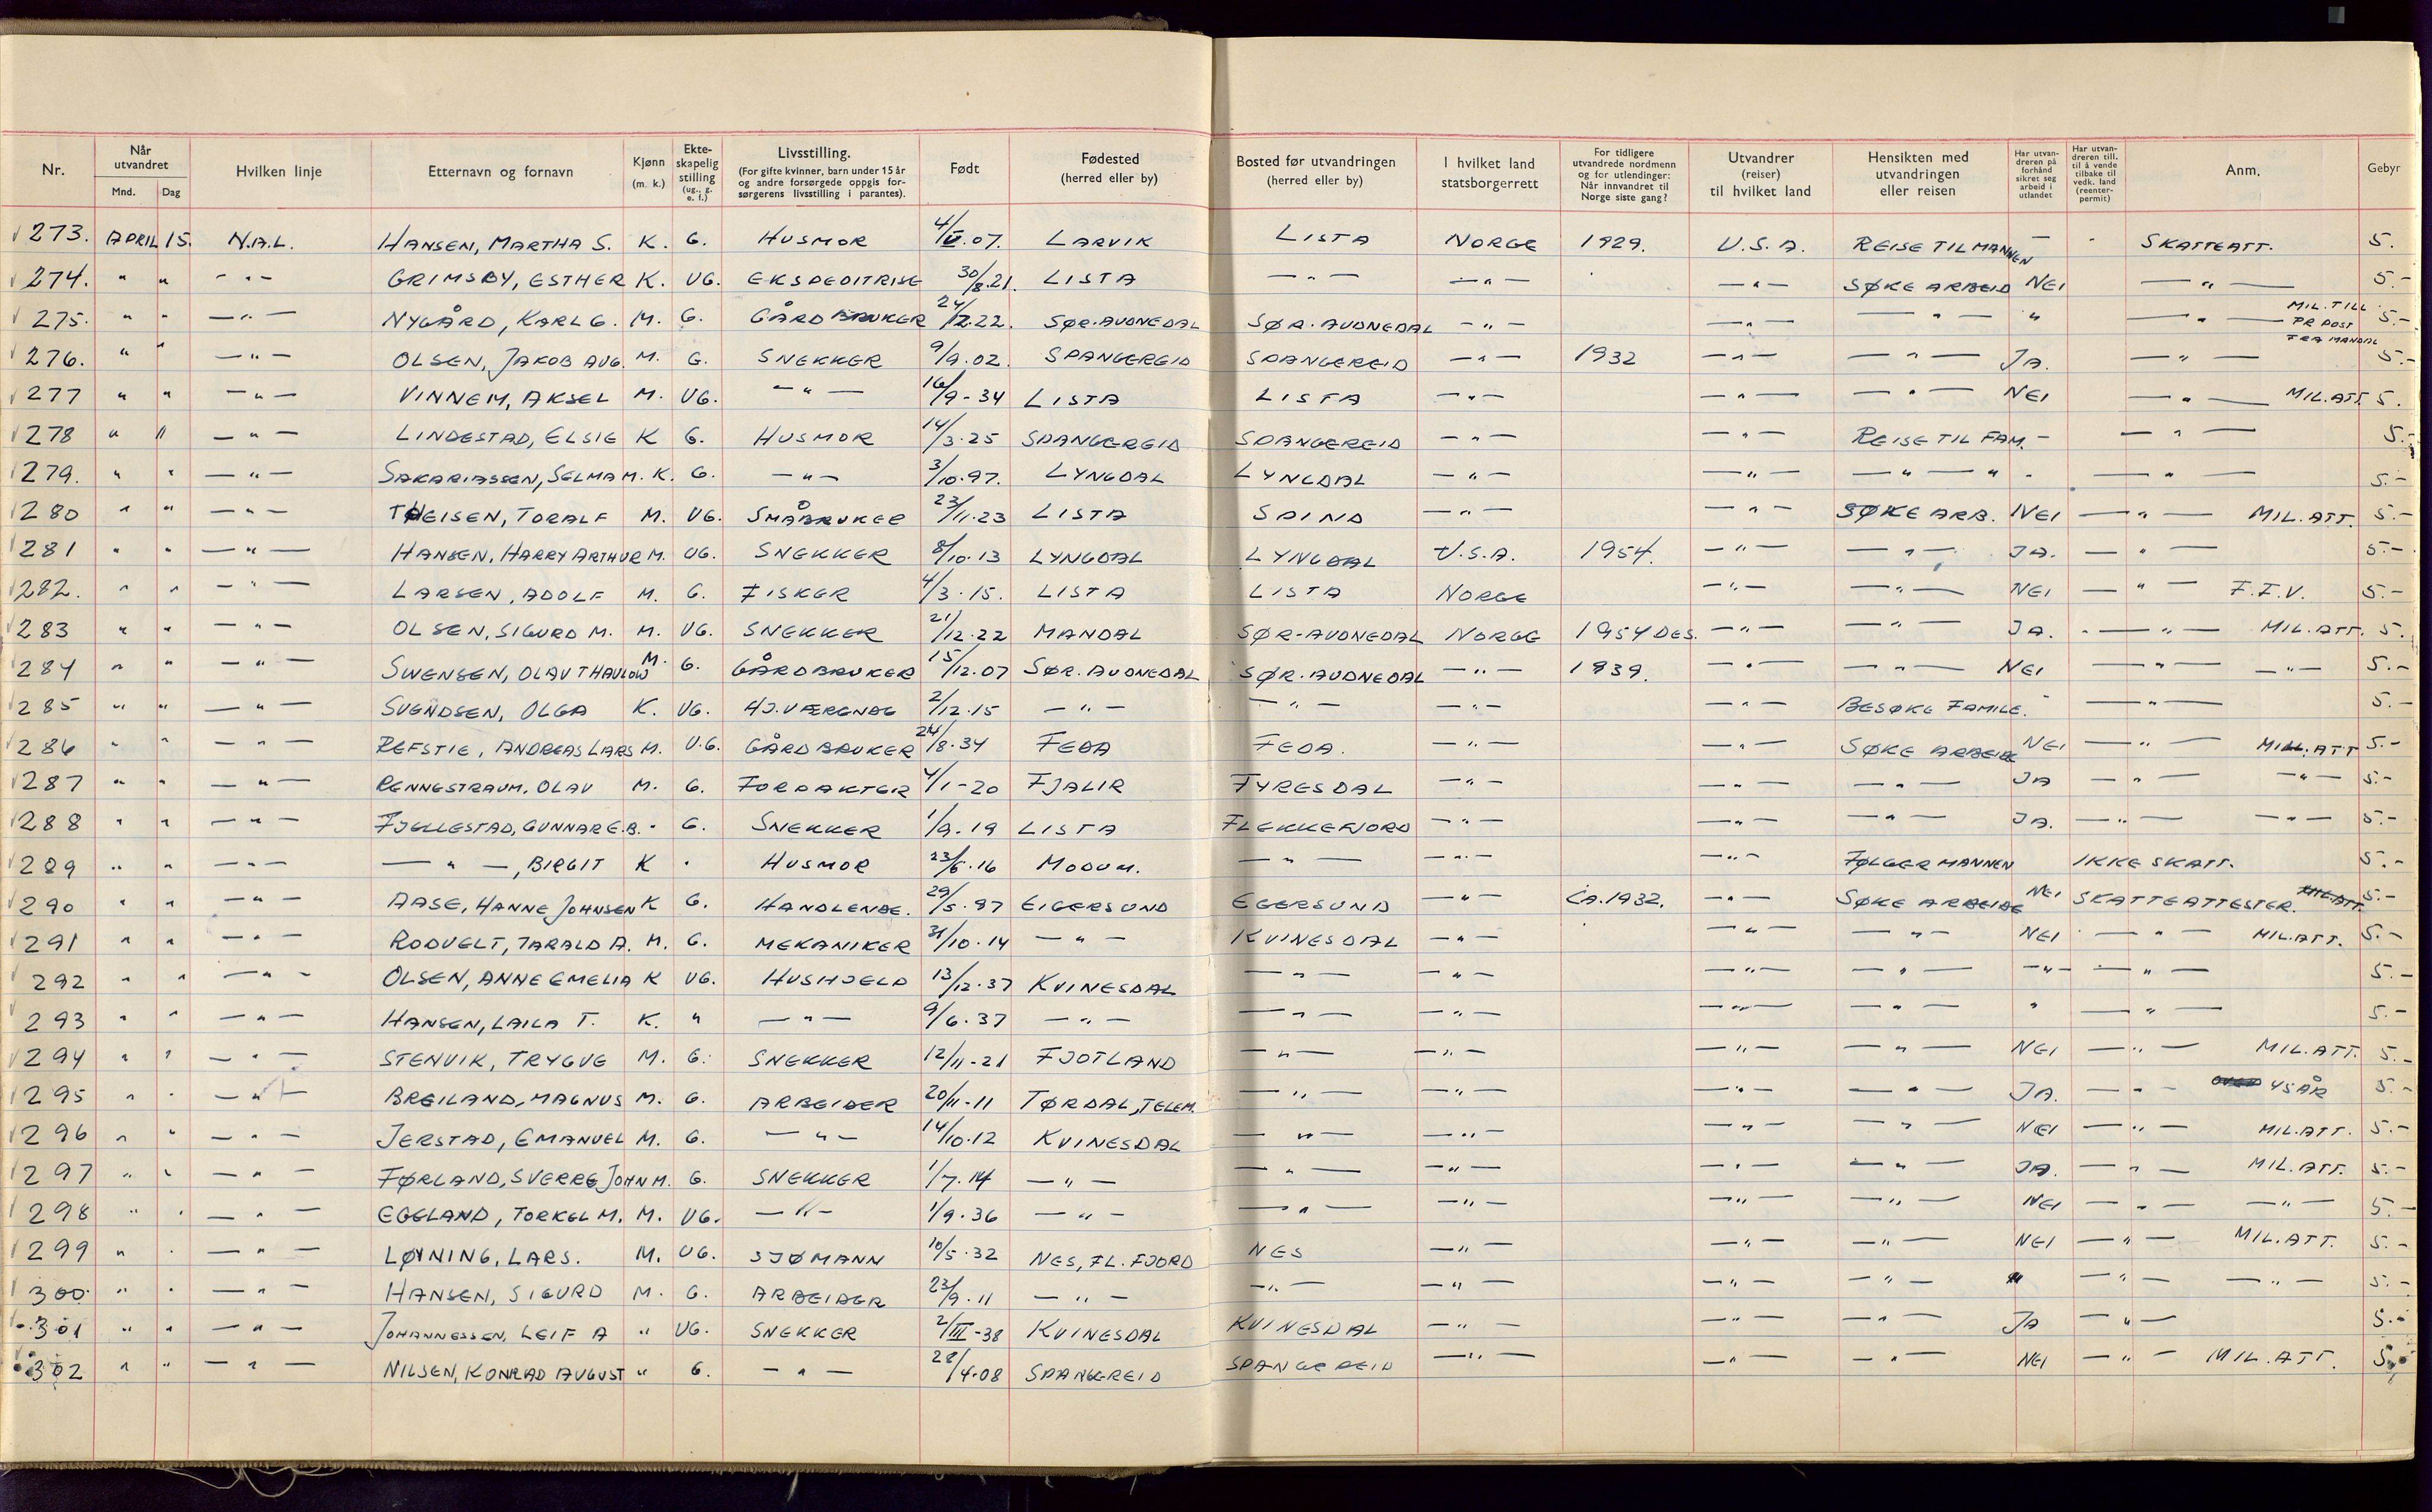 Nr. Når utvandret Mnd. Dag Hvilken linje Etternavn og fornavn Kjønn (m. k.) Ekte-skapelig stilling (ug., g. e. f.) Livsstilling. (For gifte kvinner, barn under 15 år og andre forsørgede oppgis for-sørgerens livsstilling i parantes). Født Fødested (herred eller by) Bosted før utvandringen (herred eller by) I hvilket land statsborgerrett For tidligere utvandrede nordmenn og for utlendinger: Når innvandret til Norge siste gang? Utvandrer (reiser) til hvilket land Hensikten med utvandringen eller reisen Har utvan-dreren på forhånd sikret seg arbeid i utlandet Har utvan-dreren till. til å vende tilbake til vedk. land (reenter-permit) Anm. Gebyr
273. APRIL 15. N.A.L. HANSEN, MARTHA S. K. G. HUSMOR 4/V.07. LARVIK LISTA NORGE 1929. U.S.A. REISE TIL MANNEN — SKATTEATT. 5.
274. " " -"- GRIMSBY, ESTHER K. UG. EKSPEDITRISE 30/8.21. LISTA —"— —"— —"— SØKE ARBEID NEI —"— 5.-
275. " " —"— NYGÅRD, KARL G. M. G. GÅRDBRUKER 24/12.22. SØR-AUDNEDAL SØR-AUDNEDAL —"— —"— —"— " —"— MIL. TILL. PR POST FRA MANDAL 5.-
276. " " —"— OLSEN, JAKOB AUG. M. G. SNEKKER 9/9.02. SPANGEREID SPANGEREID —"— 1932 —"— —"— JA. —"— 5.-
277 " " —"— VINNEM, AKSEL M. UG. —"— 16/9-34 LISTA LISTA —"— —"— —"— NEI —"— MIL.ATT. 5.
278 " " —"— LINDESTAD, ELSIE K G. HUSMOR 14/3.25 SPANGEREID SPANGEREID —"— —"— REISE TIL FAM. - —"— 5.-
279. " " —"— SAKARIASSEN, SELMA M. K. G. —"— 3/10.97. LYNGDAL LYNGDAL —"— —"— —"— " - —"— 5.-
280 " " —"— THEISEN, TORALF M. UG. SMÅBRUKER 23/11.23 LISTA SPIND —"— —"— SØKE ARB. NEI —"— MIL.ATT. 5.-
281 " " —"— HANSEN, HARRY ARTHUR M. UG. SNEKKER 8/10.13 LYNGDAL LYNGDAL U.S.A. 1954. —"— —"— JA. —"— 5.-
282. " " —"— LARSEN, ADOLF M. G. FISKER 4/3.15. LISTA LISTA NORGE —"— —"— NEI —"— F.F.V. 5.-
283 " " —"— OLSEN, SIGURD M. M. UG. SNEKKER 21/12.22 MANDAL SØR-AUDNEDAL NORGE 1954 DES. —"— —"— JA. —"— MIL.ATT. 5.
284 " " —"— SWENSEN, OLAV THAULOW M. G. GÅRDBRUKER 15/12.07 SØR.AUDNEDAL SØR.AUDNEDAL —"— 1939. —"— —"— NEI —"— —"— 5.-
285 " " —"— SVENDSEN, OLGA K. UG. HJ.VÆRENDE 2/12.15 —"— —"— —"— —"— BESØKE FAMILE. - —"— 5.-
286 " " —"— REFSTIE, ANDREAS LARS M. U.G. GÅRDBRUKER 24/8.34 FEDA FEDA. —"— —"— SØKE ARBEIDE NEI —"— MIL.ATT 5.-
287 " " —"— RENNESTRAUM. OLAV M. G. FORPAKTER 4/1-20 FJALIR FYRESDAL —"— —"— —"— JA —"— —"— 5.-
288 " " —"— FJELLESTAD, GUNNAR E.B. - G. SNEKKER 1/9.19 LISTA FLEKKEFJORD —"— —"— —"— JA. —"— —"— 5.-
289 " " —"— —"—, BIRGIT K " HUSMOR 23/5.16 MODUM. —"— —"— —"— FØLGER MANNEN IKKE SKATT. 5.-
290 " " —"— AASE, HANNE JOHNSEN K G. HANDLENDE. 29/5.97 EIGERSUND EGERSUND —"— CA.1932. —"— SØKE ARBEIDE NEI SKATTEATTESTER. MIL.ATT. 5.-
291 " " —"— RODVELT, TARALD A. M. G. MEKANIKER 31/10.14 —"— KVINESDAL —"— —"— —"— NEI —"— MIL.ATT. 5.-
292 " " —"— OLSEN, ANNE EMELIA K UG. HUSHJELP 13/12.37 KVINESDAL —"— —"— —"— —"— —"— —"— 5.-
293 " " —"— HANSEN, LAILA T. K. " —"— 9/6.37 —"— —"— —"— —"— —"— " —"— 5.-
294 " " —"— STENVIK, TRYGVE M. G. SNEKKER 12/11-21 FJOTLAND —"— —"— —"— —"— NEI —"— MIL.ATT. 5.-
295 " " —"— BREILAND, MAGNUS M. G. ARBEIDER 20/11-11 TØRDAL, TELEM. —"— —"— —"— —"— JA. —"— 45 ÅR 5.-
296 " " —"— JERSTAD, EMANUEL M. G. —"— 14/10.12 KVINESDAL —"— —"— —"— —"— NEI —"— MIL.ATT. 5.-
297 " " —"— FØRLAND, SVERRE JOHN M. G. SNEKKER 1/7.14 —"— —"— —"— —"— —"— JA. —"— MIL.ATT. 5.-
298 " " —"— EGELAND, TORKEL M. M. UG. —"— 1/9.36 —"— —"— —"— —"— —"— NEI —"— —"— 5.-
299 " " —"— LØYNING, LARS. M. UG. SJØMANN 10/5.32 NES, FL.FJORD NES —"— —"— —"— NEI —"— MIL.ATT. 5.-
300. " " —"— HANSEN, SIGURD M. G. ARBEIDER 23/9.11 —"— —"— —"— —"— —"— " —"— —"— 5.-
301 " " —"— JOHANNESSEN, LEIF A " UG. SNEKKER 2/III-38 KVINESDAL KVINESDAL —"— —"— —"— JA —"— 5.-
302 " " —"— NILSEN, KONRAD AUGUST " G. —"— 28/4.08 SPANGEREID SPANGEREID —"— —"— —"— NEI —"— MIL.ATT. 5.-